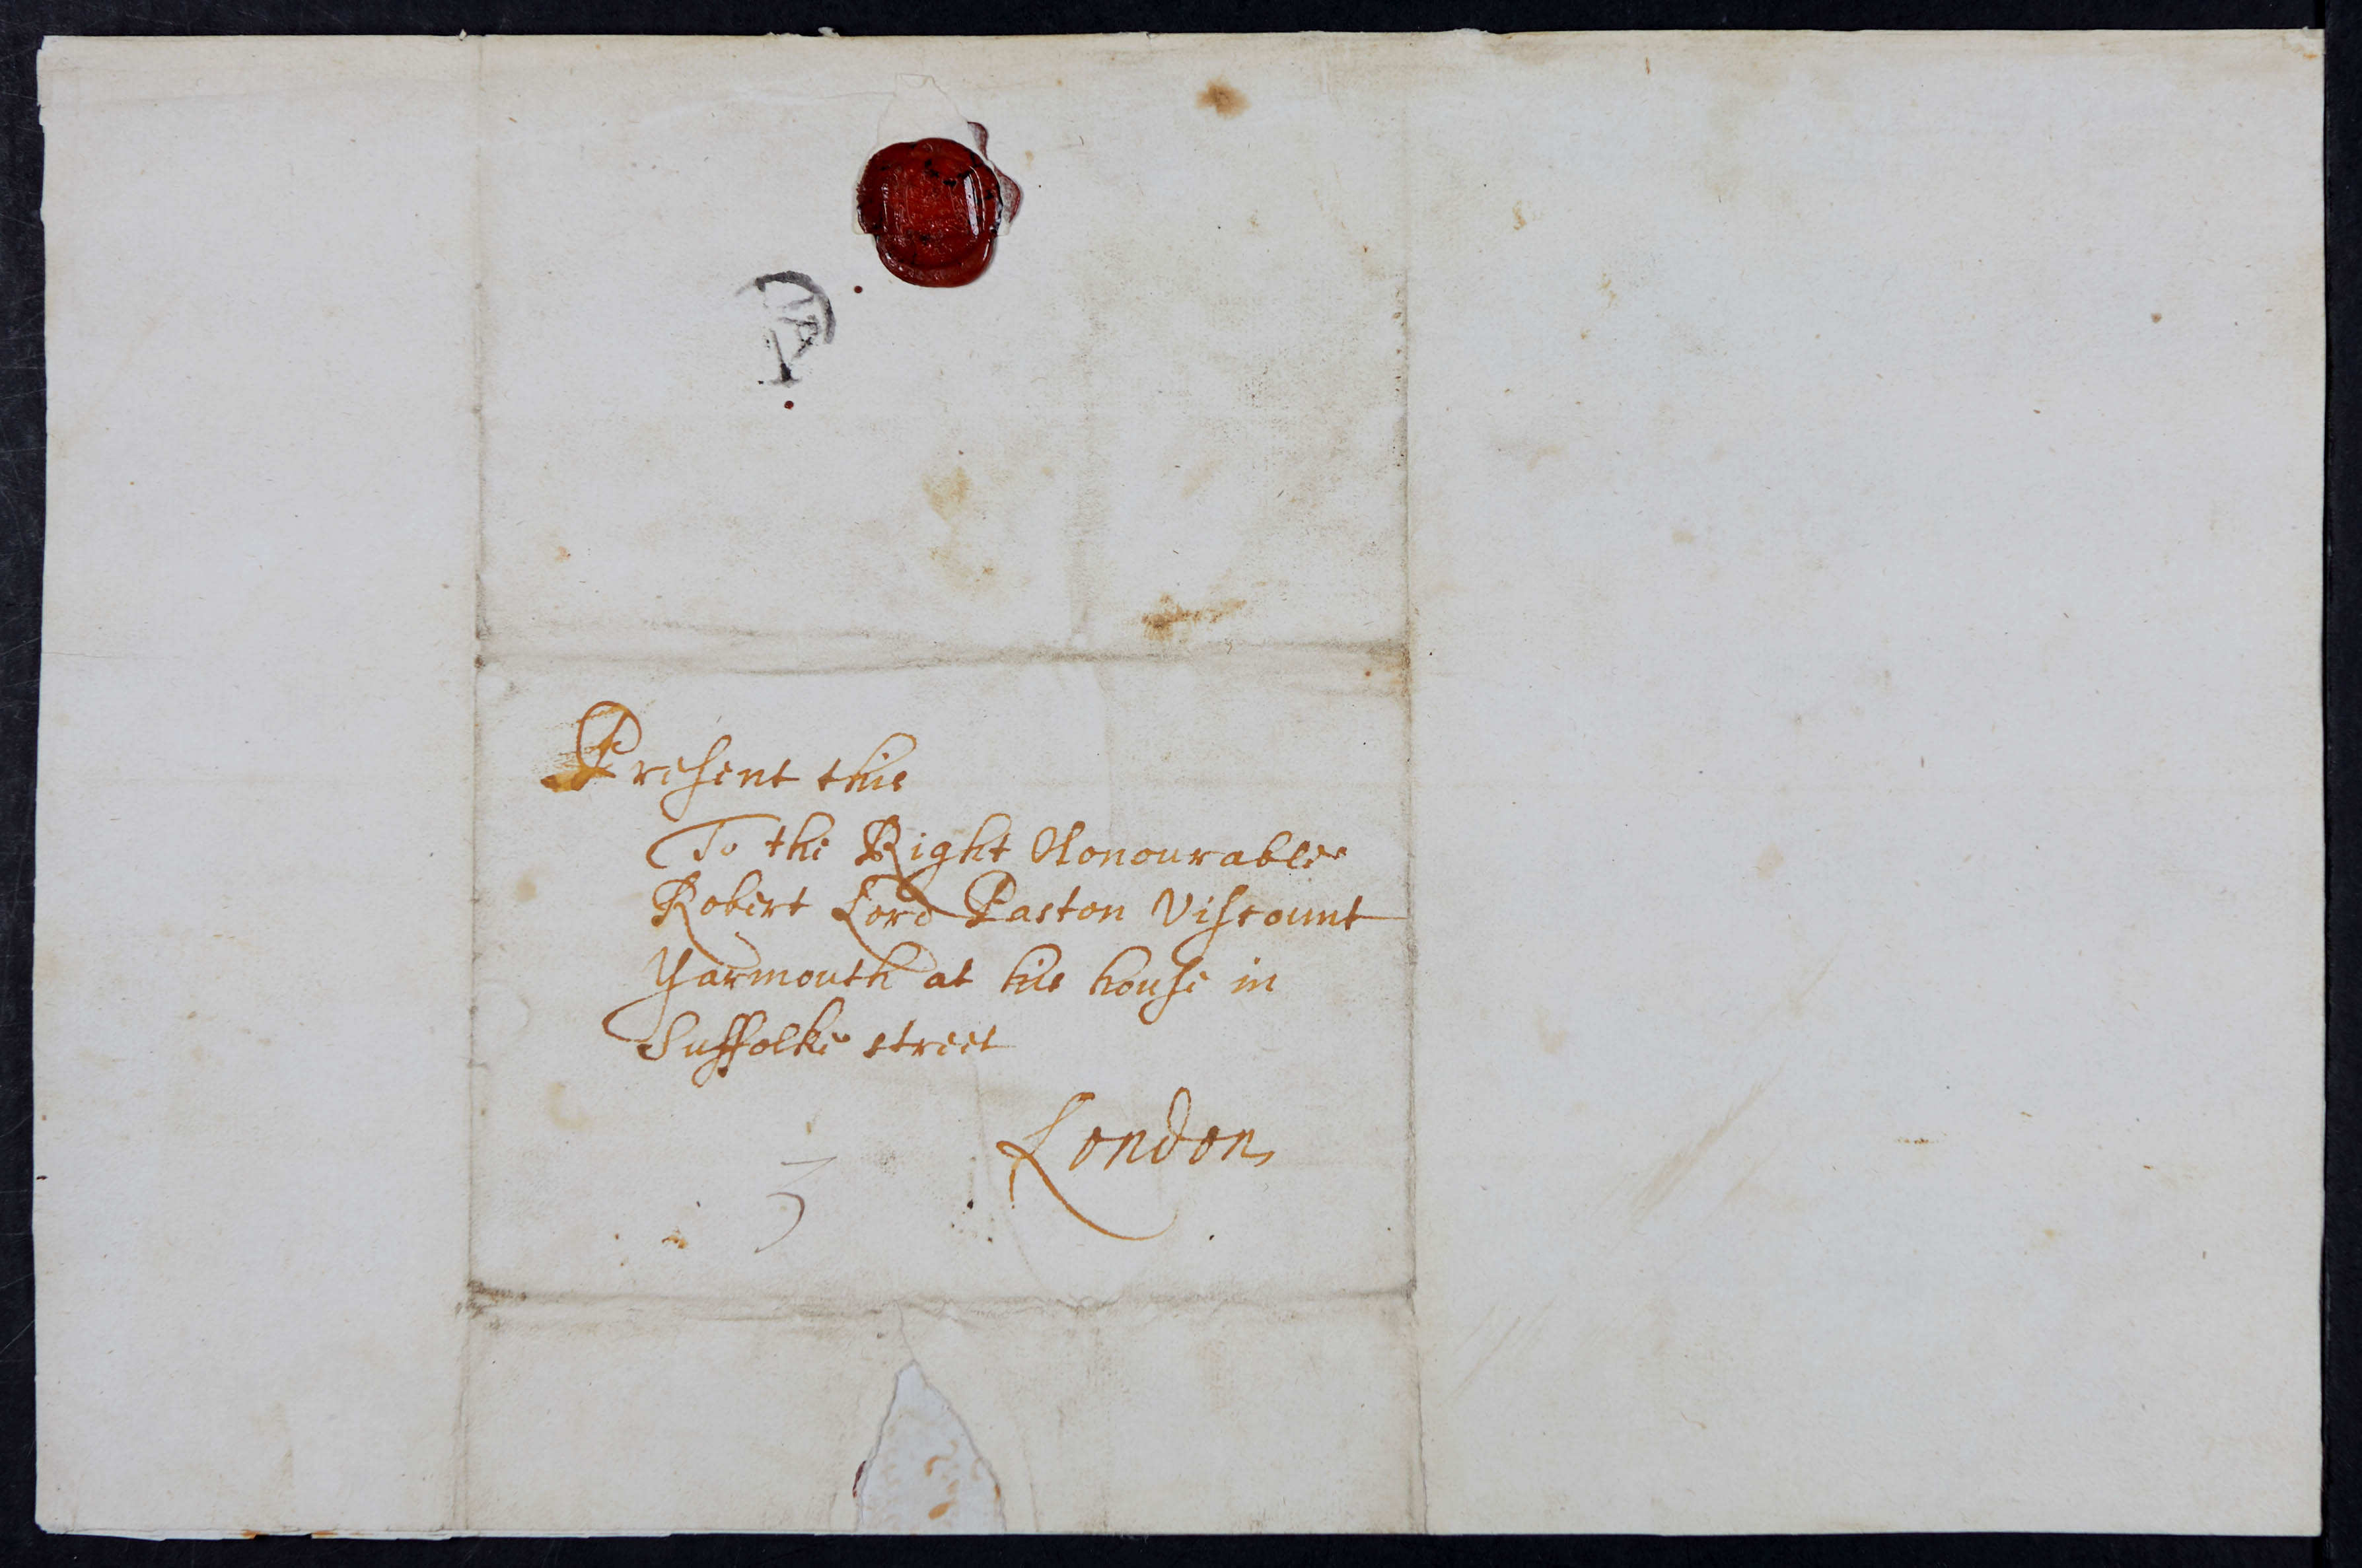 Present this
To the Right Honourable
Robert Lord Paston Viscount
Yarmouth at his house in
Suffolke street
London
3